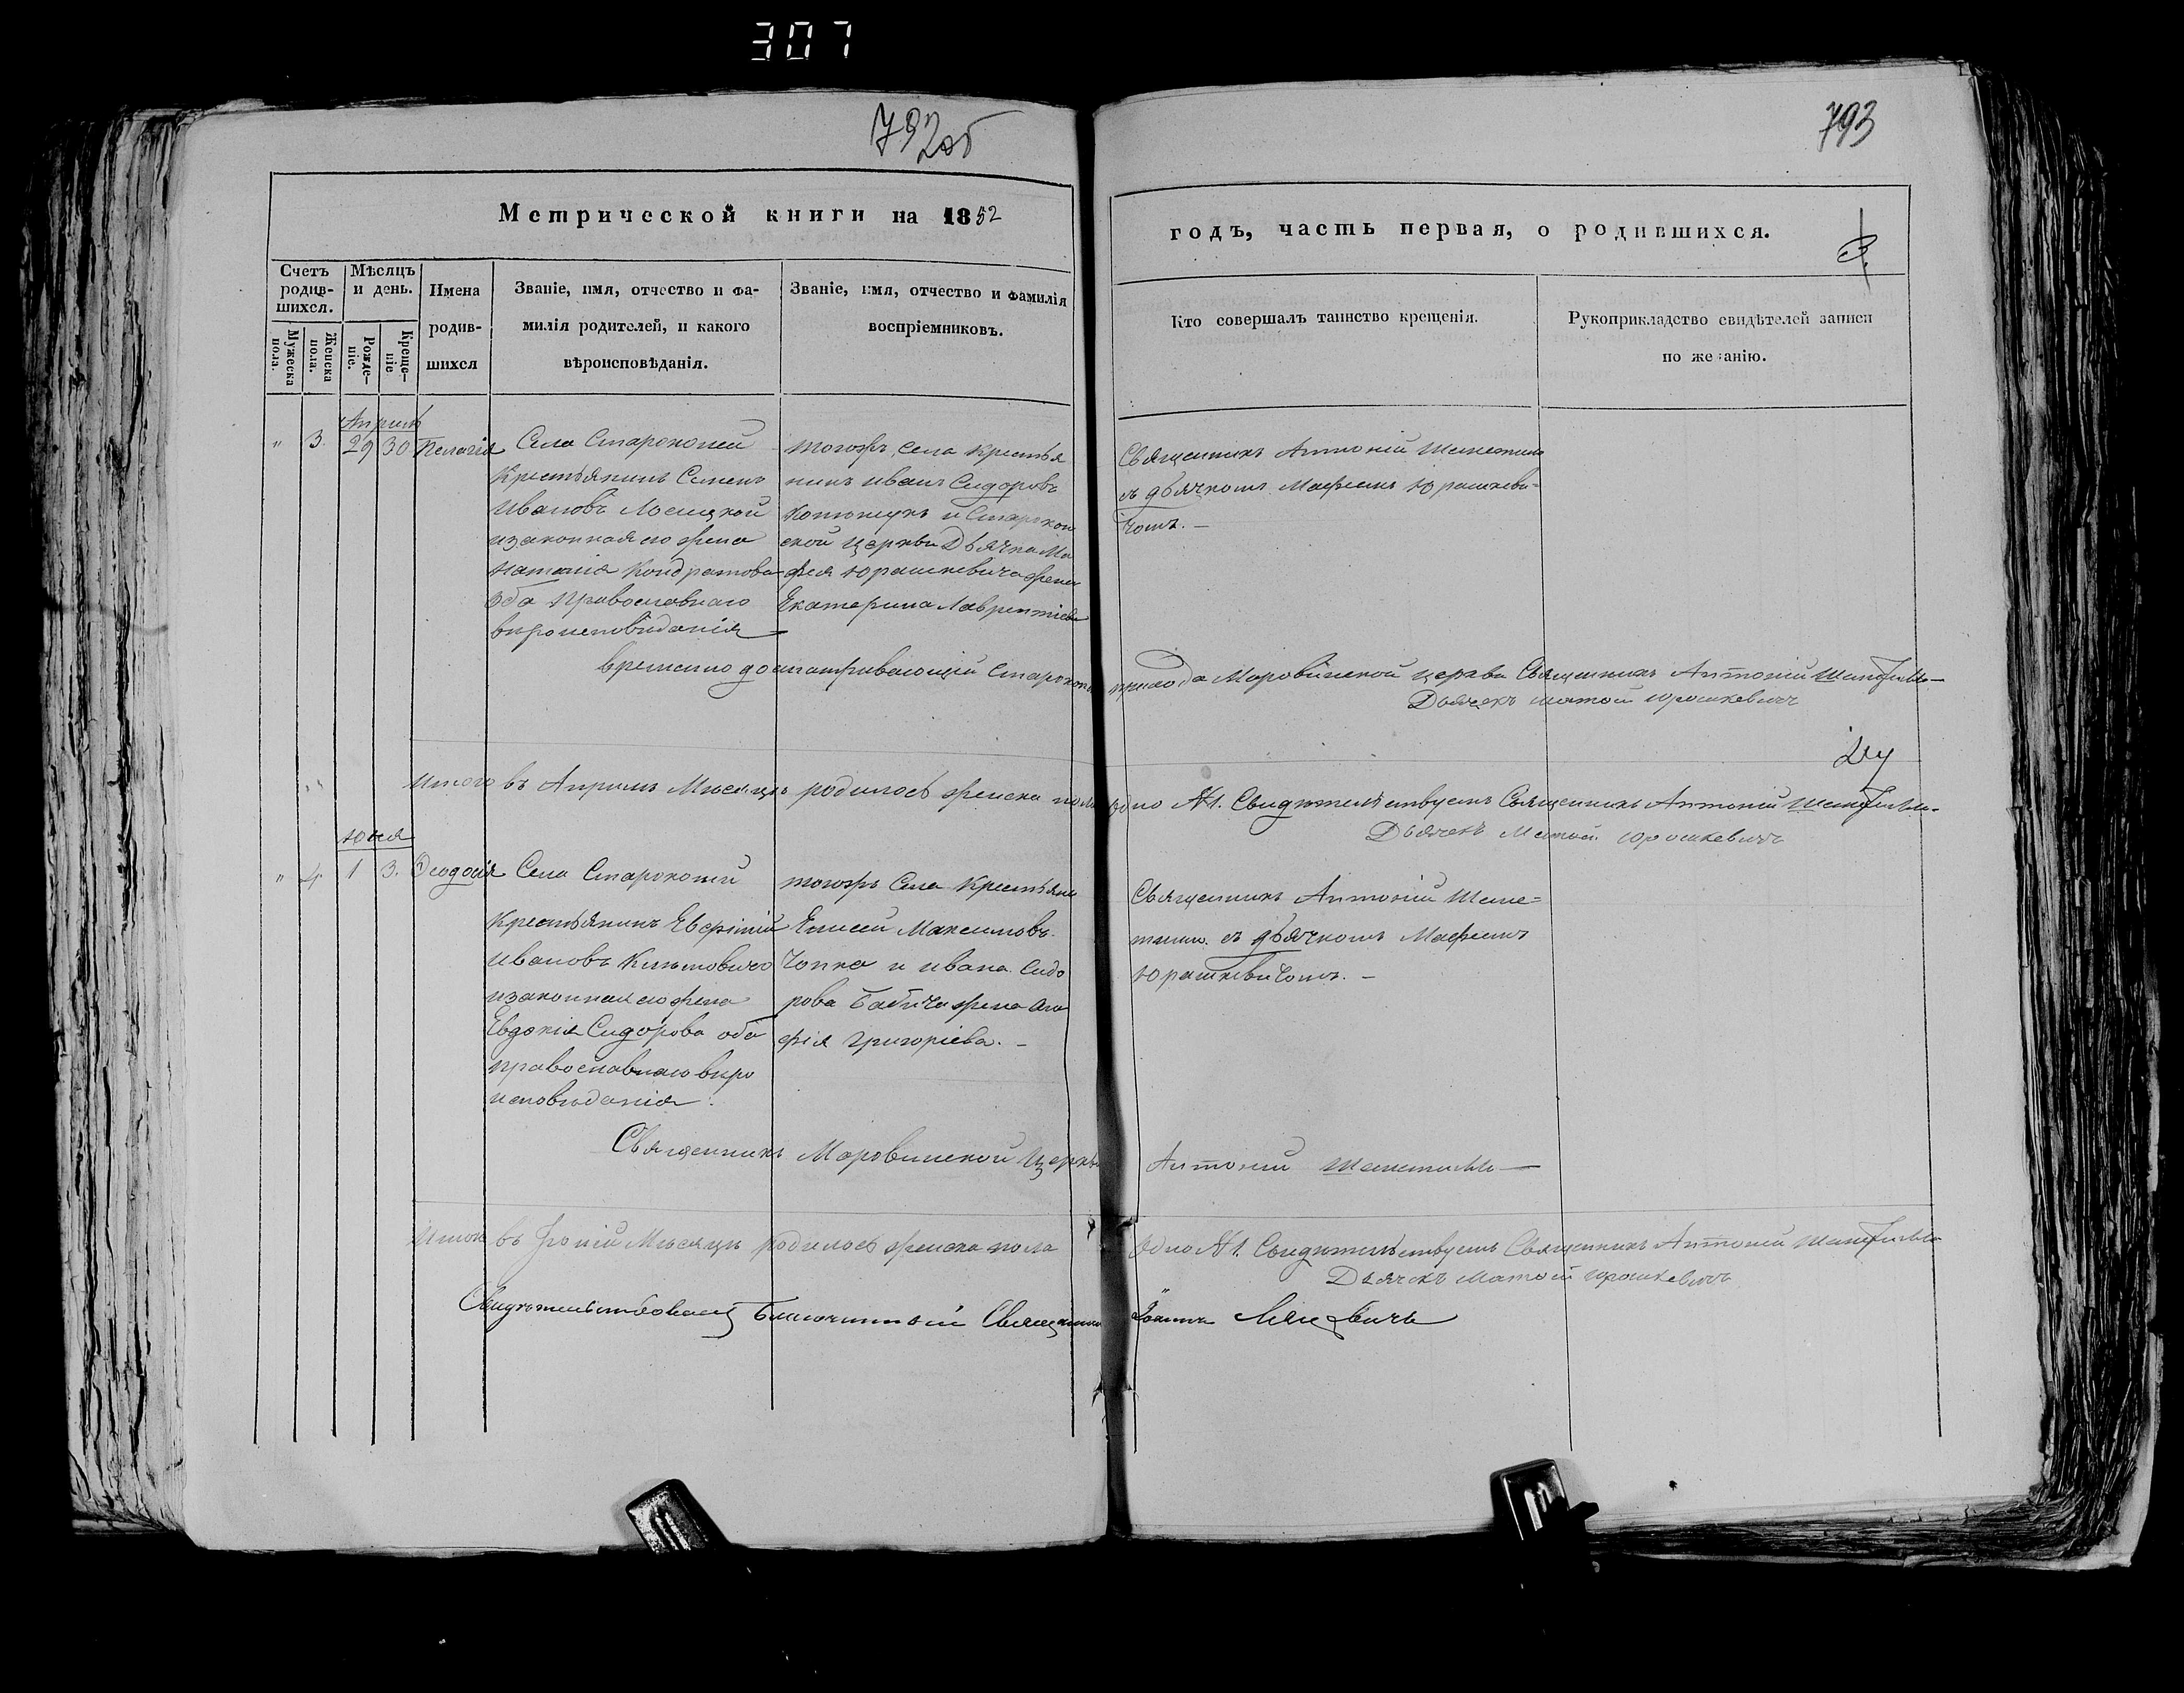 307
792об
793
Метрической книги на 1852
годъ, часть первая, о родившихся.
3.
Счетъ родив-шихся.
Мужеска пола.
Женска пола.
Мѣсяцъ и день.
Рожде-ніе.
Креще-ніе
Имена родив-шихся
Званіе, имя, отчество и фа-
милія родителей, и какого
вѣроисповѣданія.
Званіе, имя, отчество и фамилія
воспріемниковъ.
Кто совершалъ таинство крещенія.
Рукоприкладство свидѣтелей записи
по желанію.
Апрель
" 3. 29 30 Пелагія
Села Старокони
Крестьянинъ Семенъ
Ивановъ
изаконная его жена
Наталія Кондратова
Оба Православнаго
вѣроисповѣданія
тогожъ села крестья
нинъ Иванъ Сидоровъ
и Старокон
ской церкви Дьячка Ма
фея Юрашкевича жена
Екатерина Лаврентіева
Священникъ Антоній
съ дьячкомъ Мафеемъ Юрашкеви=
чомъ. –
временно досматривающій Староконс
прихода Моровинской церкви Священникъ Антоній
Дьячекъ Матөей Юрошкевичъ
Итого въ Априлѣ Мѣсяцѣ родилось женска пола
одно № 1. Свидѣтельствуемъ Священникъ Антоній
Дьячекъ Матөей Юрошкевичъ
Юня
" 4 1 3. Өеодосія
Села Старокони
Крестьянинъ Евфимій
Ивановъ
изаконная его жена
Евдокія Сидорова оба
православнаго вѣро
исповѣданія.
тогожъ Села Крестьяни
Елисей Максимовъ
Чопко и Ивана Сидо
рова Бабича жена Ага
фія Григоріева. –
Священникъ Антоній
съ дьячкомъ Мафеемъ
Юрашкевичомъ. –
Священникъ Моровинской Церкви
Антоній
Итого въ Іюній Мѣсяцѣ родилось женска пола
Одно № 1. Свидѣтельствуемъ Священникъ Антоній
Дьячекъ Матөей Юрошкевичъ
Свидѣтельствовалъ Благочинный Священникъ
Іоаннъ